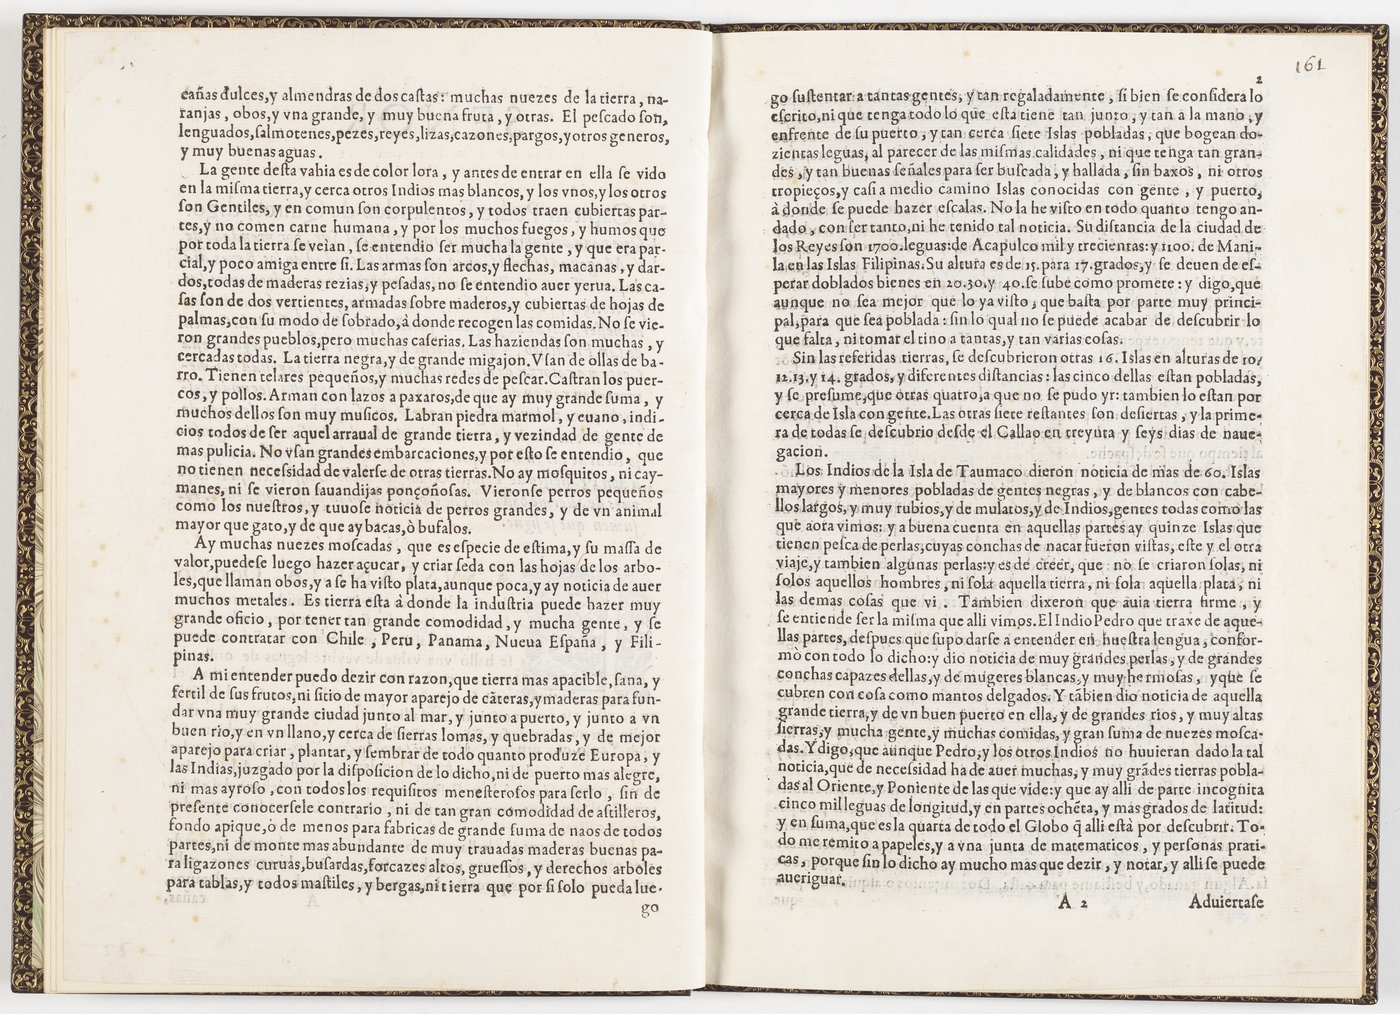 cañas dulces,y almendras de dos castas: muchas nuezes de la tierra, na-
ranjas, obos,y vna grande, y muy buena fruta, y otras. El pescado son,
lenguados,salmotenes,pezes,reyes,lizas,cazones,pargos,y otros generos,
y muy buenas aguas.
La gente desta vahia es de color lora, y antes de entrar en ella se vido
en la misma tierra,y cerca otros Indios mas blancos, y los vnos,y los otros
son Gentiles, y en comun son corpulentos, y todos traen cubiertas par-
tes,y no comen carne humana, y por los muchos fuegos, y humos que
por toda la tierra se veian, se entendio ser mucha la gente, y que era par-
cial,y poco amiga entre si. Las armas son arcos,y flechas, macanas, y dar-
dos,todas de maderas rezias,y pesadas, no se entendio auer yerua. Las ca-
sas son de dos vertientes, armadas sobre maderos,y cubiertas de hojas de
palmas,con su modo de sobrado,à donde recogen las comidas. No se vie-
ron grandes pueblos,pero muchas caserias. Las haziendas son muchas, y
cercadas todas. La tierra negra,y de grande migajon. Vsan de ollas de ba-
rro. Tienen telares pequeños,y muchas redes de pescar.Castran los puer-
cos, y pollos. Arman con lazos a paxaros,de que ay muy grande suma, y
muchos dellos son muy musicos. Labran piedra marmol, y euano, indi-
cios todos de ser aquel arraual de grande tierra, y vezindad de gente de
mas pulicia. No vsan grandes embarcaciones,y por esto se entendio, que
no tienen necessidad de valerse de otras tierras.No ay mosquitos, ni cay-
manes, ni se vieron sauandijas ponçoñosas. Vieronse perros pequeños
como los nuestros, y tuuose noticia de perros grandes, y de vn animal
mayor que gato,y de que ay bacas,ò bufalos.
Ay muchas nuezes moscadas, que es especie de estima,y su massa de
valor,puedese luego hazer açucar, y criar seda con las hojas de los arbo-
les,que llaman obos,y a se ha visto plata,aunque poca,y ay noticia de auer
muchos metales. Es tierra esta à donde la industria puede hazer muy
grande oficio, por tener tan grande comodidad, y mucha gente, y se
puede contratar con Chile, Peru, Panama, Nueua España, y Fili-
pinas.
A mi entender puedo dezir con razon,que tierra mas apacible,sana, y
fertil de sus frutos,ni sitio de mayor aparejo de cãteras,y maderas para fun-
dar vna muy grande ciudad junto al mar, y junto a puerto, y junto a vn
buen rio,y en vn llano,y cerca de sierras lomas, y quebradas, y de mejor
aparejo para criar, plantar, y sembrar de todo quanto produze Europa, y
las Indias,juzgado por la disposicion de lo dicho,ni de puerto mas alegre,
ni mas ayroso, con todos los requisitos menesterosos para serlo, sin de
presente conocersele contrario, ni de tan gran comodidad de astilleros,
fondo apique,ò de menos para fabricas de grande suma de naos de todos
partes,ni de monte mas abundante de muy trauadas maderas buenas pa-
ra ligazones curuas,busardas,forcazes altos, gruessos, y derechos arboles
para tablas,y todos mastiles, y bergas,ni tierra que por si solo pueda lue-
go
161
2
go sustentar a tantas gentes, y tan regaladamente, si bien se considera lo
escrito,ni que tenga todo lo que esta tiene tan junto, y tan a la mano, y
enfrente de su puerto, y tan cerca siete Islas pobladas, que bogean do-
zientas leguas, al parecer de las mismas calidades, ni que tenga tan gran-
des, y tan buenas señales para ser buscada, y hallada, sin baxos, ni otros
tropieços, y casi a medio camino Islas conocidas con gente, y puerto,
à donde se puede hazer escalas. No la he visto en todo quanto tengo an-
dado, con ser tanto,ni he tenido tal noticia. Su distancia de la ciudad de
los Reyes son 1700.leguas:de Acapulco mil y trecientas:y 1100. de Mani-
la en las Islas Filipinas.Su altura es de 15.para 17.grados,y se deuen de es-
perar doblados bienes en 20.30.y 40.se sube como promete: y digo,que
aunque no sea mejor que lo ya visto, que basta por parte muy princi-
pal,para que sea poblada: sin lo qual no se puede acabar de descubrir lo
que falta, ni tomar el tino a tantas,y tan varias cosas.
Sin las referidas tierras, se descubrieron otras 16. Islas en alturas de 10,
12.13.y 14. grados, y diferentes distancias: las cinco dellas estan pobladas,
y se presume,que otras quatro,a que no se pudo yr: tambien lo estan por
cerca de Isla con gente.Las otras siete restantes son desiertas, y la prime-
ra de todas se descubrio desde el Callao en treynta y seys dias de naue-
gacion.
Los Indios de la Isla de Taumaco dieron noticia de mas de 60. Islas
mayores y menores pobladas de gentes negras, y de blancos con cabe-
llos largos, y muy rubios,y de mulatos,y de Indios,gentes todas como las
que aora vimos: y a buena cuenta en aquellas partes ay quinze Islas que
tienen pesca de perlas,cuyas conchas de nacar fueron vistas, este y el otra
viaje,y tambien algunas perlas:y es de creer, que no se criaron solas, ni
solos aquellos hombres, ni sola aquella tierra, ni sola aquella plata, ni
las demas cosas que vi. Tambien dixeron que auia tierra firme, y
se entiende ser la misma que alli vimos.El Indio Pedro que traxe de aque-
llas partes,despues que supo darse a entender en nuestra lengua, confor-
mò con todo lo dicho:y dio noticia de muy grandes perlas, y de grandes
conchas capazes dellas,y de mugeres blancas,y muy hermosas, y que se
cubren con cosa como mantos delgados. Y tãbien dio noticia de aquella
grande tierra,y de vn buen puerto en ella, y de grandes rios, y muy altas
sierras,y mucha gente,y muchas comidas, y gran suma de nuezes mosca-
das. Y digo,que aunque Pedro,y los otros Indios no huuieran dado la tal
noticia,que de necesidad ha de auer muchas, y muy grãdes tierras pobla-
das al Oriente,y Poniente de las que vide:y que ay alli de parte incognita
cinco mil leguas de longitud,y en partes ochẽta, y mas grados de latitud:
y en suma,que es la quarta de todo el Globo q̃ alli està por descubrir. To-
do me remito a papeles,y a vna junta de matematicos, y personas prati-
cas, porque sin lo dicho ay mucho mas que dezir, y notar, y alli se puede
aueriguar.
A 2 Aduiertase